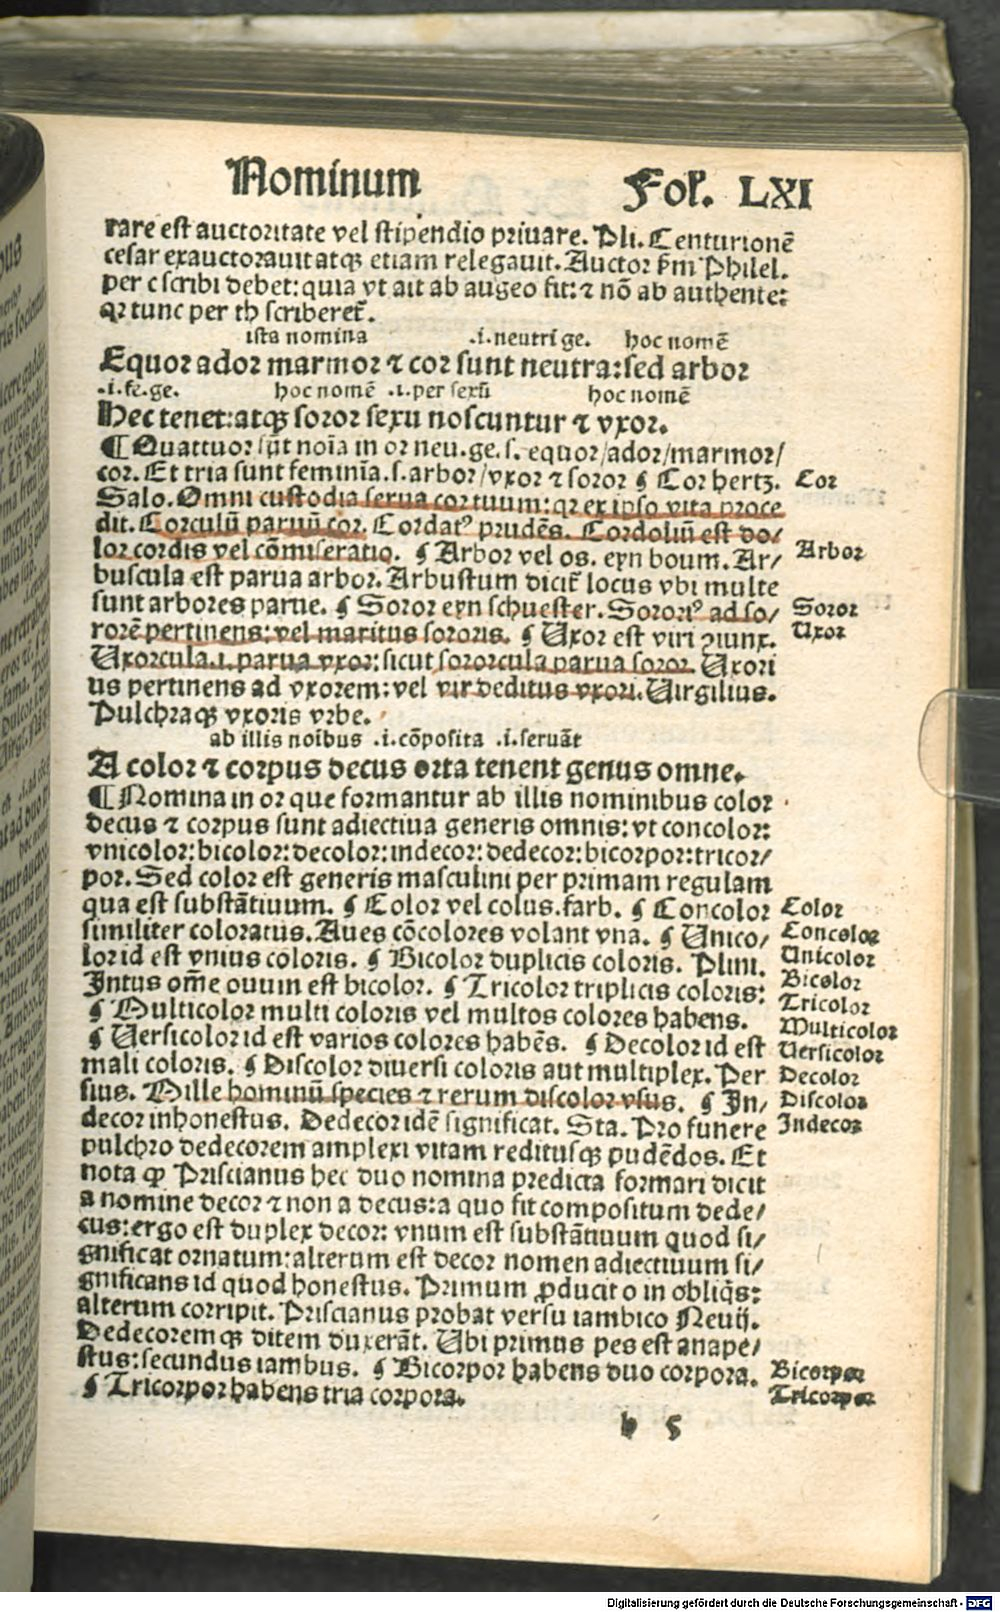 Nominum Fol. LXI
rare est auctoritate vel stipendio priuare. Pli. Centurionē
cesar exauctorauit atqꝫ etiam relegauit. Auctor ẜm Philel.
per c scribi debet: quia vt ait ab augeo fit: ⁊ nō ab authente:
qꝛ tunc per th scriberet̄.
ista nomina .i. neutri ge. hoc nomē
Equor ador marmor ⁊ cor sunt neutra: sed arbor
.i. fe. ge. hoc nomē .i. per sexū hoc nomē
Hec tenet: atqꝫ soror sexu noscuntur ⁊ vxor.
¶ Quattuor sūt noīa in or neu. ge. s. equor/ador/marmor/
cor. Et tria sunt feminīa. s. arbor/vxor ⁊ soror ¶ Cor hertz. Cor
Salo. Omni custodia serua cor tuum: qꝛ ex ipso vita proce
dit. Corculū paruū cor. Cordatꝰ prudēs. Cordoliū est do/
lor cordis vel cōmiseratio. ¶ Arbor vel os. eyn boum. Ar/ Arbor
buscula est parua arbor. Arbustum dicit̄ locus vbi multe
sunt arbores parue. ¶ Soror eyn schuester. Sororiꝰ ad so/ Soror
rorē pertinens: vel maritus sororis. ¶ Uxor est viri ꝯiunx. Uxor
Uxorcula .i. parua vxor: sicut sororcula parua soror. Uxori
us pertinens ad vxorem: vel vir deditus vxori. Uirgilius.
Pulchraqꝫ vxoris vrbe.
ab illis noībus .i. cōposita .i. seruāt
A color ⁊ corpus decus orta tenent genus omne.
¶ Nomina in or que formantur ab illis nominibus color
decus ⁊ corpus sunt adiectiua generis omnis: vt concolor:
vnicolor: bicolor: decolor: indecor: dedecor: bicorpor: tricor/
por. Sed color est generis masculini per primam regulam
qua est substātiuum. ¶ Color vel colus. farb. ¶ Concolor Color
similiter coloratus. Aues cōcolores volant vna. ¶ Unico/ Concolor
lor id est vnius coloris. ¶ Bicolor duplicis coloris. Plini. Unicolor
Intus om̄e ouum est bicolor. ¶ Tricolor triplicis coloris: Bicolor
¶ Multicolor multi coloris vel multos colores habens. Tricolor
Multicolor
¶ Uersicolor id est varios colores habēs. ¶ Decolor id est Uersicolor
mali coloris. ¶ Discolor diuersi coloris aut multiplex. Per Decolor
sius. Mille hominū species ⁊ rerum discolor vsus. ¶ In/ Discolor
decor inhonestus. Dedecor idē significat. Sta. Pro funere Indecor
pulchro dedecorem amplexi vitam reditusqꝫ pudēdos. Et
nota ꝙ Priscianus hec duo nomina predicta formari dicit
a nomine decor ⁊ non a decus: a quo fit compositum dede/
cus: ergo est duplex decor: vnum est substātiuum quod si/
gnificat ornatum: alterum est decor nomen adiectiuum si/
gnificans id quod honestus. Primum ꝓducit o in obliqͥs:
alterum corripit. Priscianus probat versu iambico Neuij.
Dedecoremqꝫ ditem duxerāt. Ubi primus pes est anape/
stus: secundus iambus. ¶ Bicorpor habens duo corpora. Bicorpor
¶ Tricorpor habens tria corpora. Tricorpor
h 5
Digitalisierung gefördert durch die Deutsche Forschungsgemeinschaft - DFG